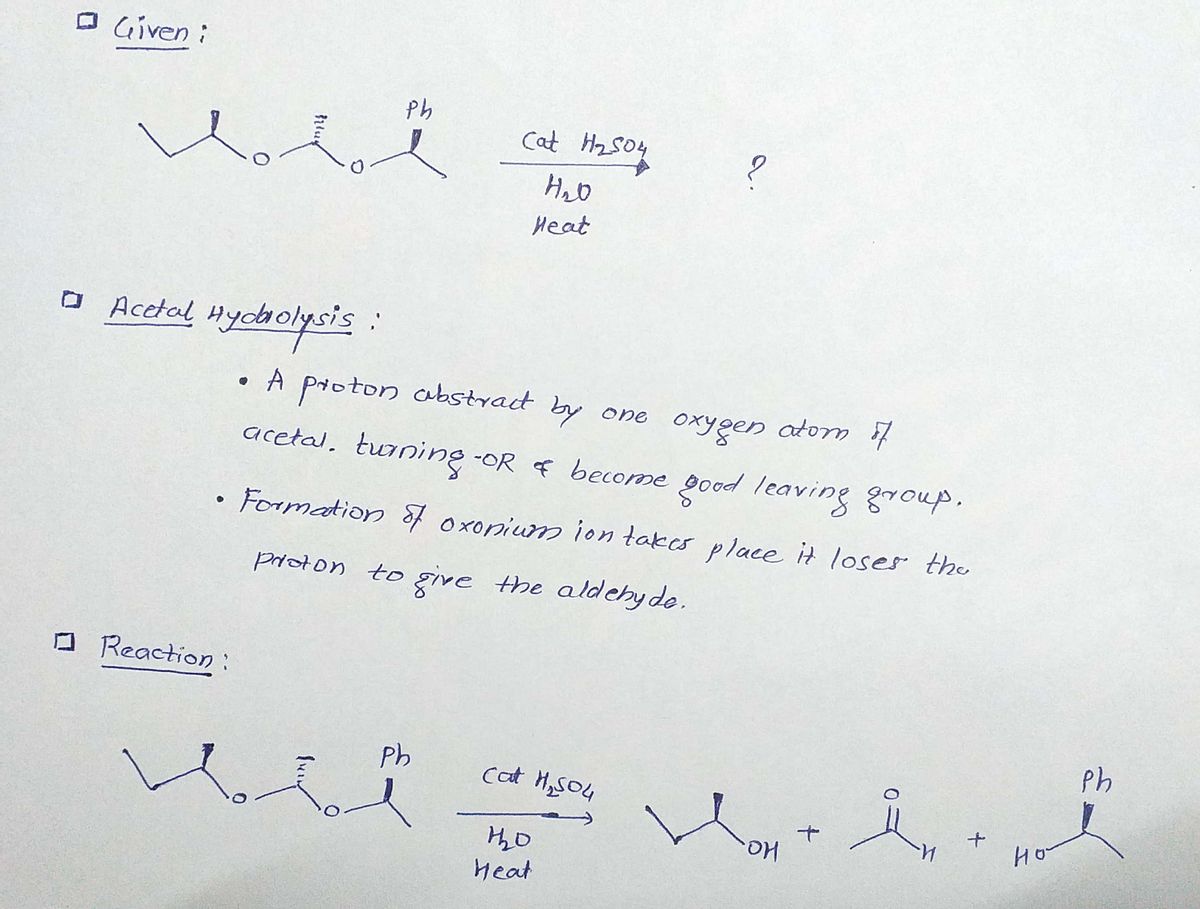 Given :
Ph
O
O
Cat H2SO4
H2O
Heat
?
Acetal Hydrolysis :
• A proton abstract by one oxygen atom of
acetal. turning -OR & become good leaving group.
• Formation of oxonium ion takes place it loses the
proton to give the aldehyde.
Reaction :
Ph
O
O
Cat H2SO4
H2O
Heat
OH
+
O
H
+
Ph
HO